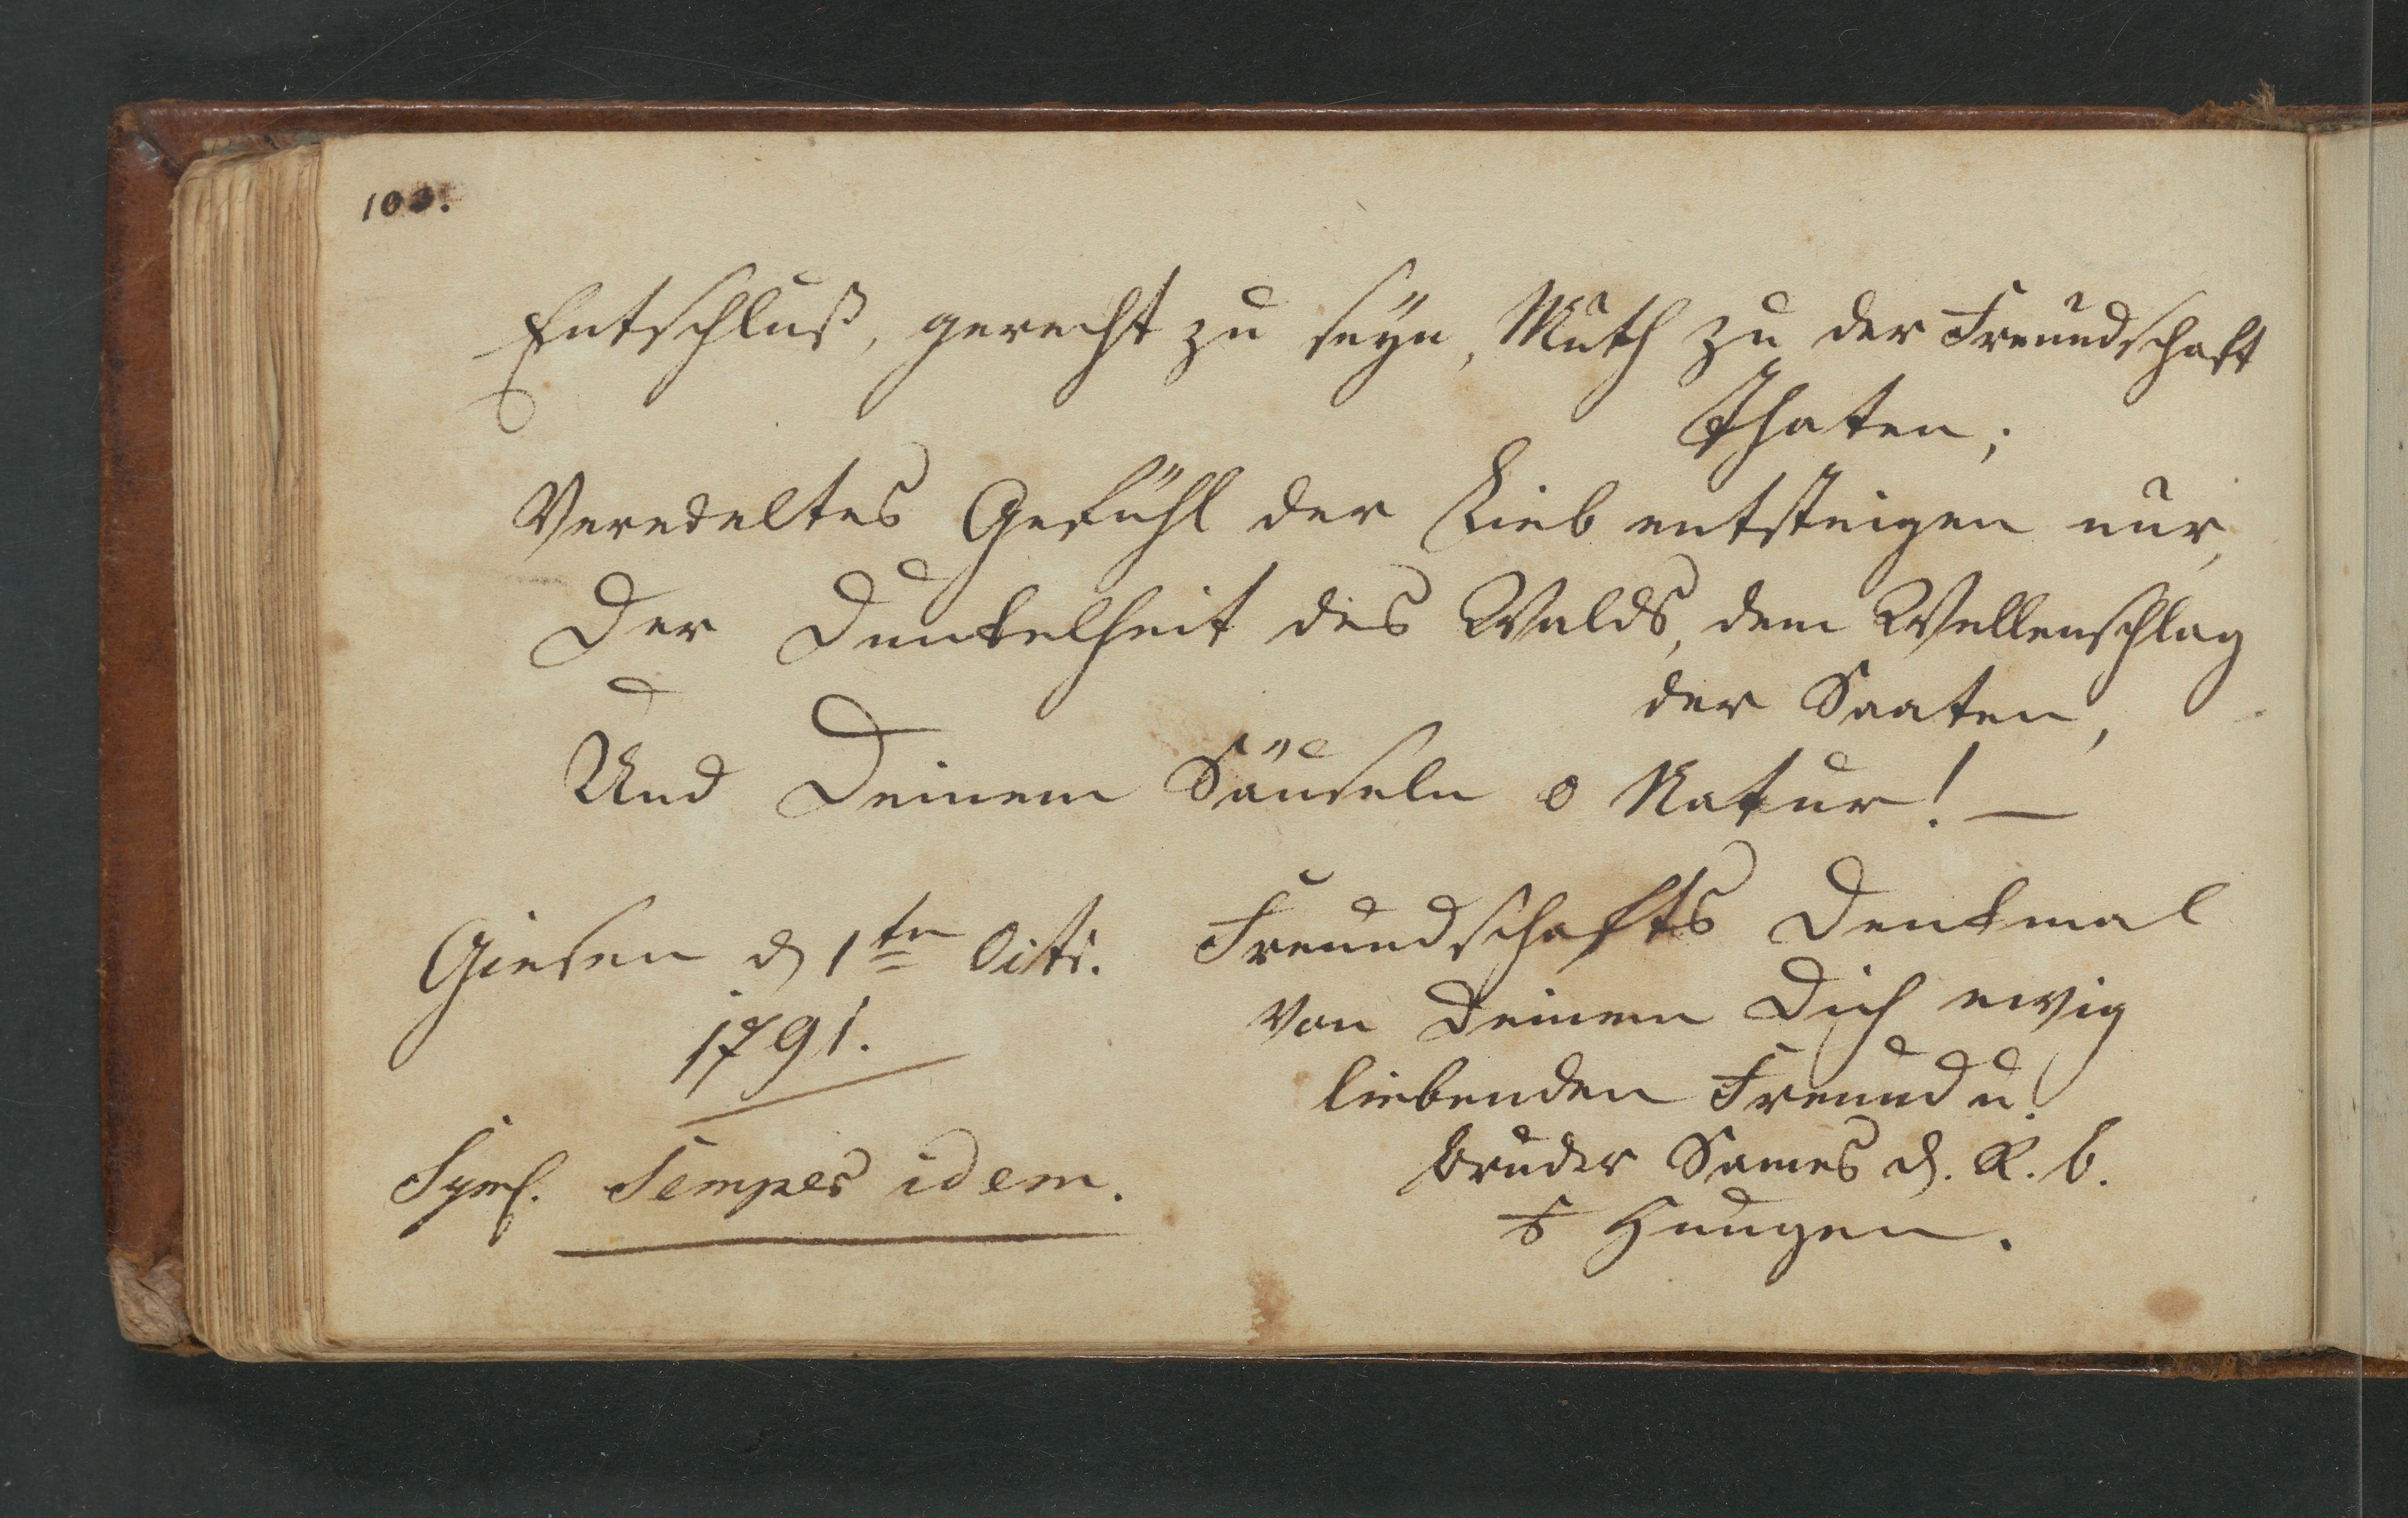 Entschluß, gerecht zu seyn, Muth zu der Freundschaft
Thaten;
Veredeltes Gefühl der Lieb entsteigen nur,
Der Dunkelheit des Walds, dem Wellenschlag
der Saaten,
Und Deinem Säuseln o Natur! —
Giesen d 1ten Octr.
1791.
Symb. Semper idem.
Freundschafts Denkmal
von Deinem Dich ewig
liebenden Freund u.
Bruder Sames d. R. b.
Hungen.